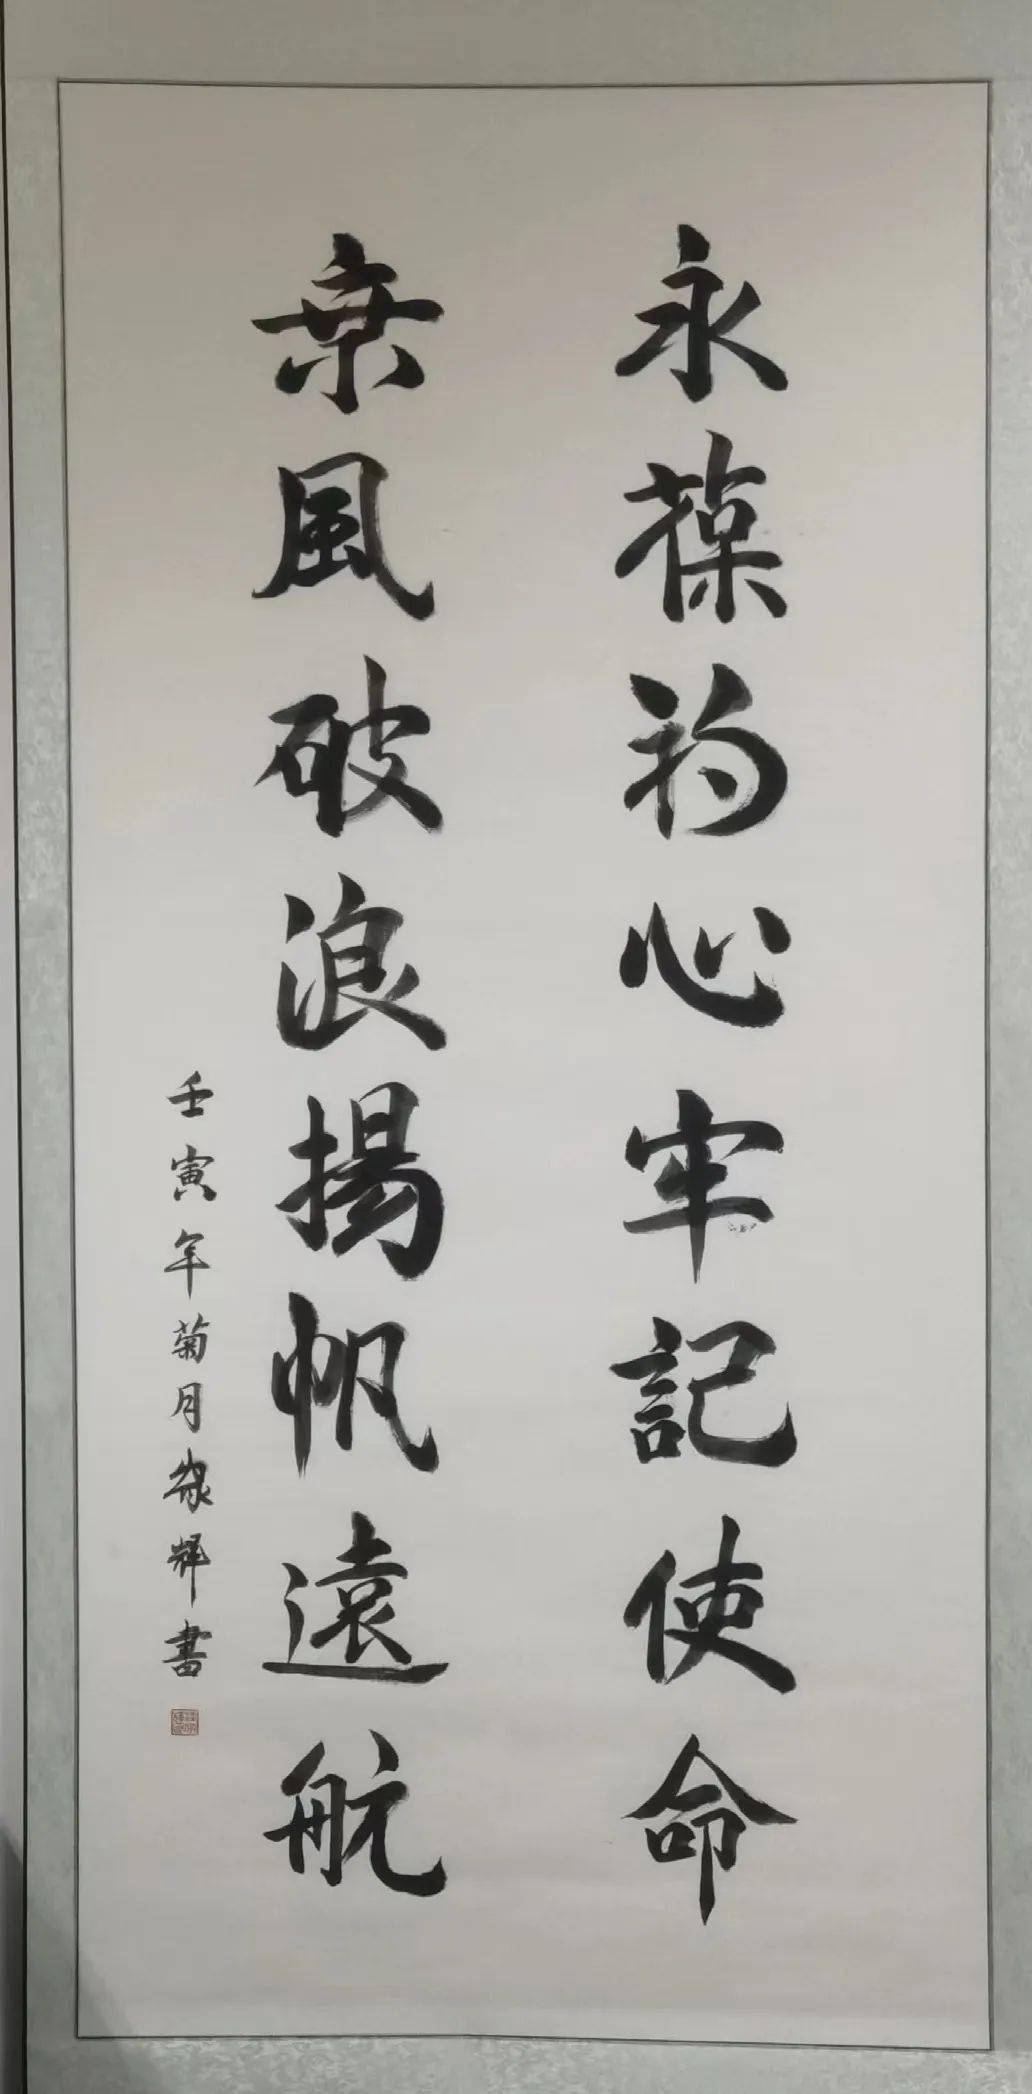 永葆初心牢記使命
乘風破浪揚帆遠航
壬寅年菊月家輝書